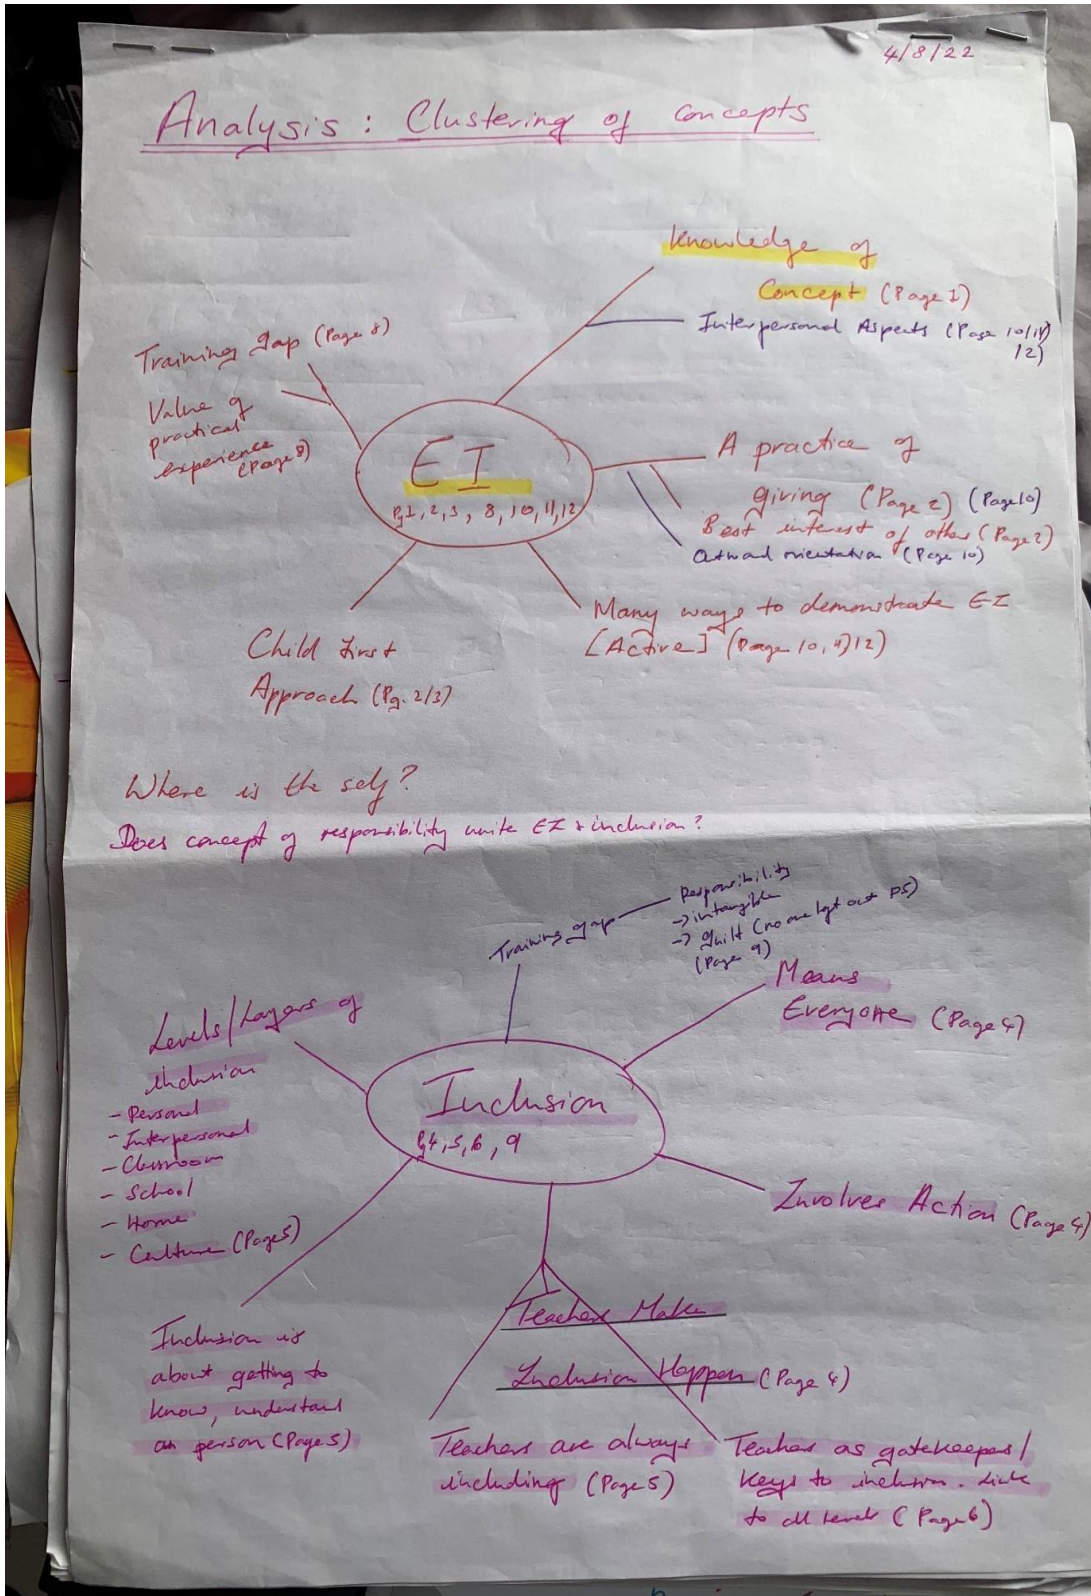 4/8/22
Analysis : Clustering of concepts
Knowledge of
Concept (Page 1)
Interpersonal Aspects (Page 10/11/
12)
Training gap (Page 8)
Value of
practical
experience
(Page 8)
EI
Pg1, 2, 3, 8, 10, 11, 12
A practice of
giving (Page 2) (Page 10)
Best interest of others (Page 2)
Outward orientation (Page 10)
Many ways to demonstrate EI
[Active] (Page 10, 11, 12)
Child First
Approach (Pg. 2/3)
Where is the self?
Does concept of responsibility unite EI + inclusion?
Training gap
Responsibility
→ intangible
→ guilt (no one left out P5)
(Page 9)
Means
Everyone (Page 4)
Levels/Layers of
inclusion
- Personal
- Interpersonal
- Classroom
- School
- Home
- Culture (Page 5)
Inclusion
Pg4, 5, 6, 9
Involves Action (Page 4)
Teachers Make
Inclusion Happen (Page 4)
Inclusion is
about getting to
know, understand
a person (Page 5)
Teachers are always
including (Page 5)
Teachers as gatekeepers/
keys to inclusion. Link
to all levels (Page 6)